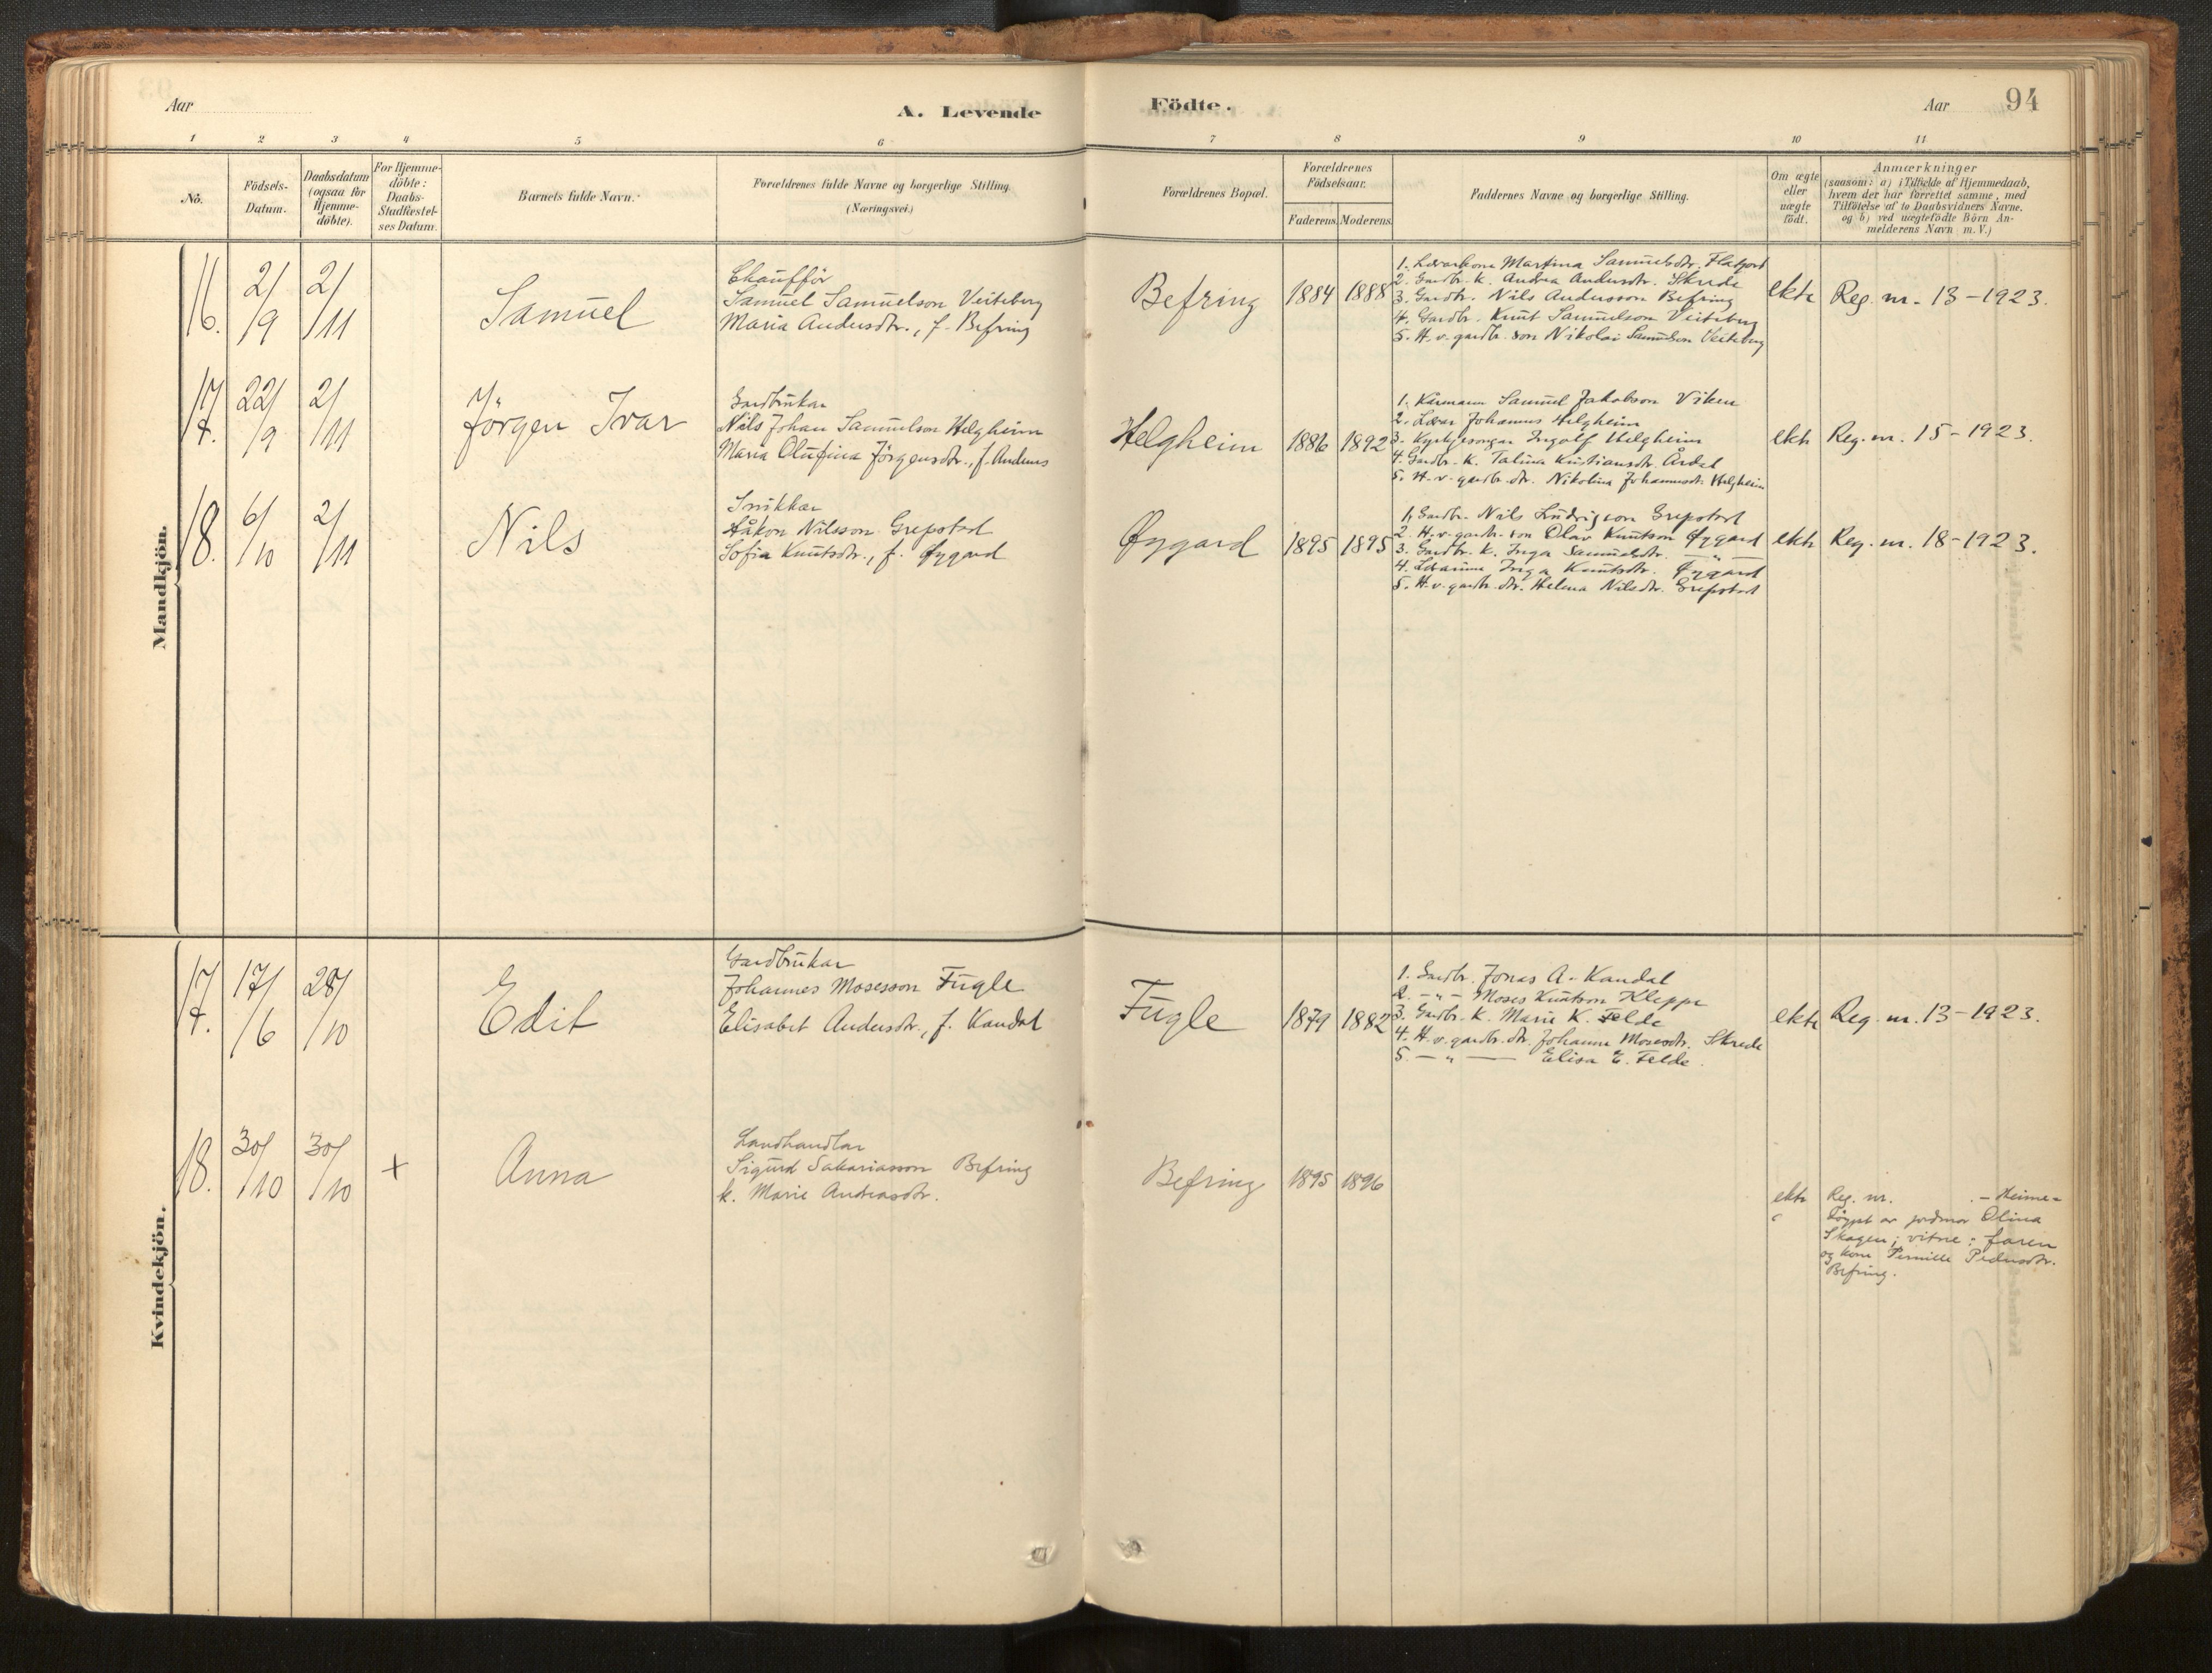 Aar
A. Levende
Födte.
Aar
94
1 2 3 4 5 6 7 8 9 10 11
No.
Födsels-
Datum.
Daabsdatum
(ogsaa for
Hjemme-
döbte).
For Hjemme-
döbte:
Daabs-
Stadfæstel-
ses Datum.
Barnets fulde Navn.
Forældrenes fulde Navne og borgerlige Stilling.
(Næringsvei.)
Forældrenes Bopæl.
Forældrenes
Födselsaar.
Faderens.
Moderens.
Faddernes Navne og borgerlige Stilling.
Om ægte
eller
uægte
födt.
Anmærkninger
(saasom: a) i Tilfælde af Hjemmedaab,
hvem der har forrettet samme, med
Tilföielse af to Daabsvidners Navne.
og b) ved uægtefödte Börn An-
melderens Navn m. V.)
Mandkjön.
16.
2/9
2/11
Samuel
Chaufför
Samuel Samuelson Veiteberg
Maria Andersdtr., f. Befring
Befring
1884
1888
1. Lærarkona Martina Samuelsdtr. Flatjord
2. Gardbr. k. Andrea Andersdtr. Skrede
3. Gardbr. Nils Andersson Befring
4. Gardbr. Knut Samuelson Veiteberg
5. H. v. gardbr. son Nikolai Samuelson Veiteberg
ekte
Reg. nr. 13-1923.
17.
22/9
2/11
Jörgen Ivar
Gardbrukar
Nils Johan Samuelson Helgheim
Maria Olufina Jörgensdtr., f. Andenes
Helgheim
1886
1892
1. Kårmann Samuel Jakobson Viken
2. Lærar Johannes Helgheim
3. Kyrkjesongar Ingolf Helgheim
4. Gardbr. k. Talina Kristiansdtr. Årdal
5. H. v. gardbr. dtr. Nikolina Johannesdtr. Helgheim
ekte
Reg. nr. 15-1923.
18.
6/10
2/11
Nils
Snikkar
Håkon Nilsson Grepstad
Sofia Knutsdtr., f. Øygard
Øygard
1895
1895
1. Gardbr. Nils Ludvigson Grepstad
2. H. v. gardbr. son Olav Knutson Øygard
3. Gardbr. k. Inga Samuelsdtr. — " —
4. Lærarinne Inga Knutsdtr. Øygard
5. H. v. gardbr. dtr. Helena Nilsdtr. Grepstad
ekte
Reg. nr. 18-1923.
Kvindekjön.
17.
17/6
28/10
Edit
Gardbrukar
Johannes Mosesson Fugle
Elisabet Andersdtr., f. Kandal
Fugle
1879
1882
1. Gardbr. Jonas A. Kandal
2. — " — Moses Knutson Kleppe
3. Gardbr. k. Marie K. Felde
4. H. v. gardbr. dtr. Johanne Mosesdtr. Skrede
5. — " — Elisa E. Felde.
ekte
Reg. nr. 13-1923.
18.
30/10
30/10
+
Anna
Landhandlar
Sigurd Sakariasson Befring
k. Marie Andreasdtr.
Befring
1895
1896
ekte
Reg. nr. . - Heime-
döypt av jordmor Olina
Skagen; vitne: faren
og kona Pernille Pedersdtr.
Befring.